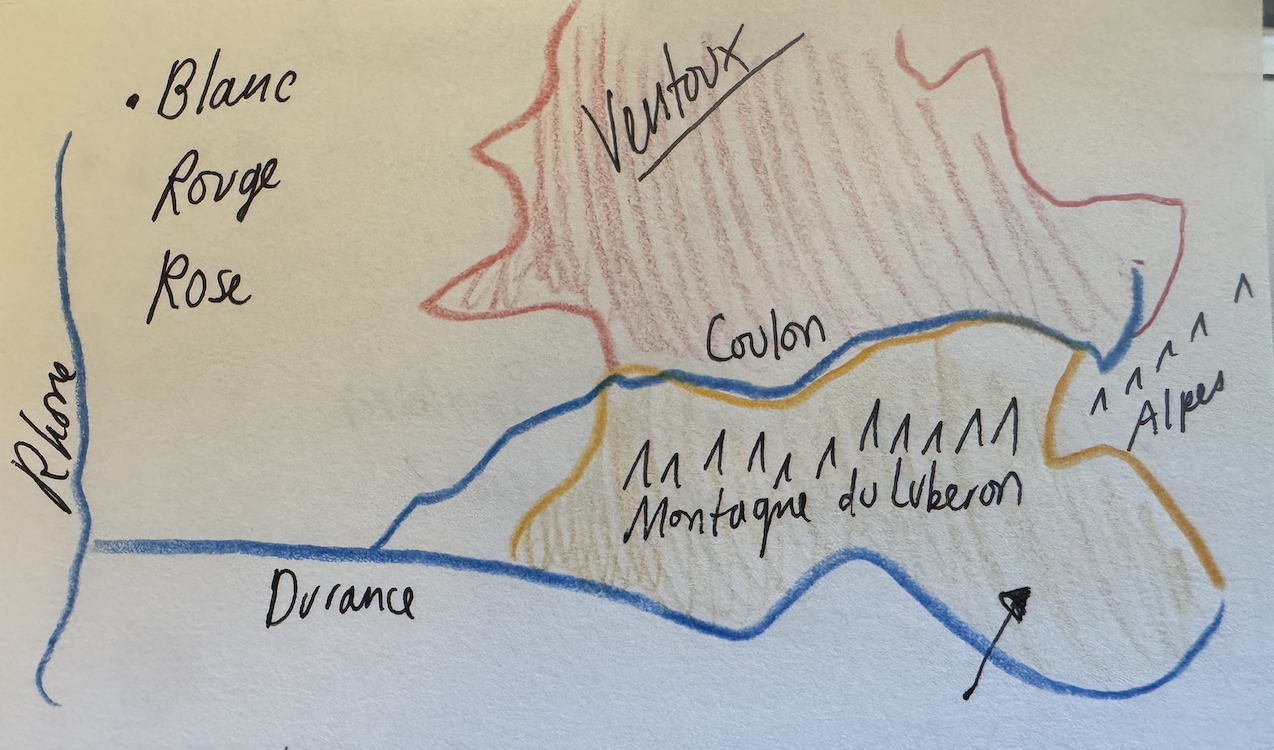 • Blanc
Rouge
Rose
Ventoux
Rhone
Coulon
Alpes
Montagne du Luberon
Durance